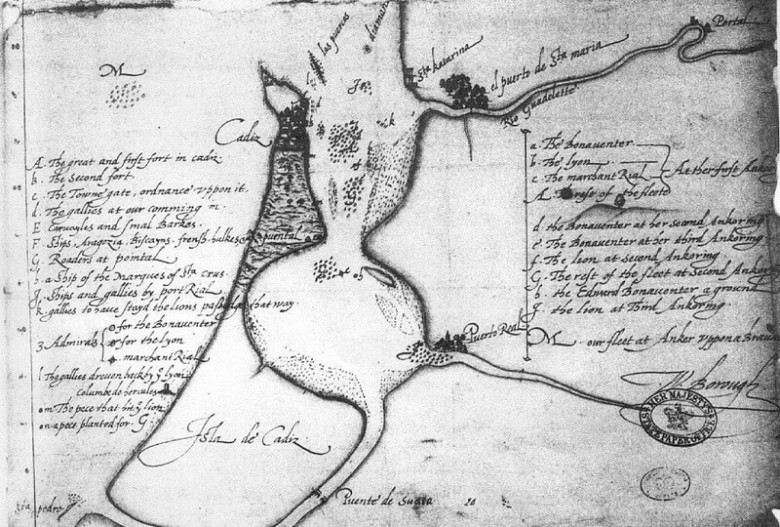 las puercas
diamant
Portal
M
Sta katarina
el puerto de Sta maria
Rio Guadelette
Cadiz
A. The great and first fort in cadiz
b. the Second fort
c. The Towne gate, ordnance uppon it.
d. the gallies at our comming in.
E
F. Ships, Aragozia, Biscayns, frensh, hulkes
G. Roaders at pointal
h. a Ship of the Marques of Sta crus.
J. Ships and gallies by port Rial
k. gallies to have stayd the lions passadge that way.
3 Admirals
for the Bonaventer
for the lyon
marchant Rial
l The gallies dreven back by ye lyon
columbe de hercules
m The pece that hit ye lion
n a pece planted for G
puental
a. The Bonaventer
b. The lyon
c. The marchant Rial
At her first Ankoring
A. rest of the fleete
d. the Bonaventer at her second Ankoring
e. The Bonaventer at her third Ankoring
f. The lion at second Ankoring
G. The rest of the fleet at Second Ankor
h. the Edward Bonaventer a ground
J. the lion at Third Ankoring
M. our fleet at Anker uppon a
Puerto Real
Wm Borough
HER MAJESTYS
STATE PAPER OFFICE
Isla de Cadiz
Puente de Suaço
pedro